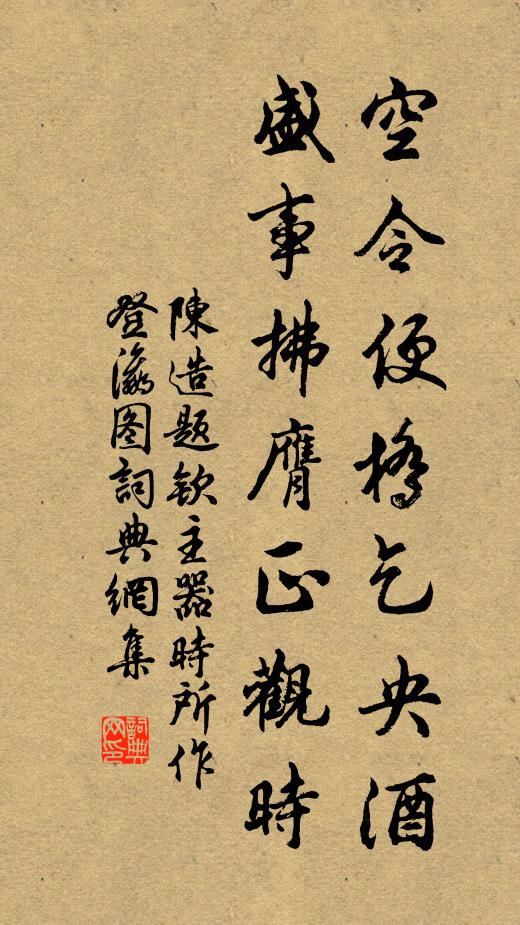 空令便橋乞央酒
盛事拂膺正觀時
陳造題欽主器時所作
登瀛图詞典網集
詞典网印